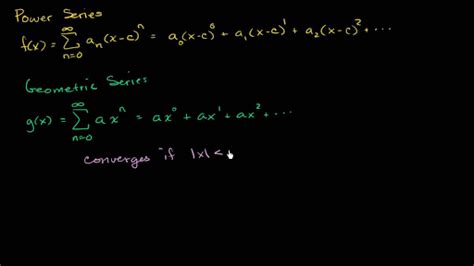 Power Series
f(x) = ∑_{n=0}^{∞} a_n(x-c)^n = a_0(x-c)^0 + a_1(x-c)^1 + a_2(x-c)^2 + ...
Geometric Series
g(x) = ∑_{n=0}^{∞} ax^n = ax^0 + ax^1 + ax^2 + ...
converges if |x| <